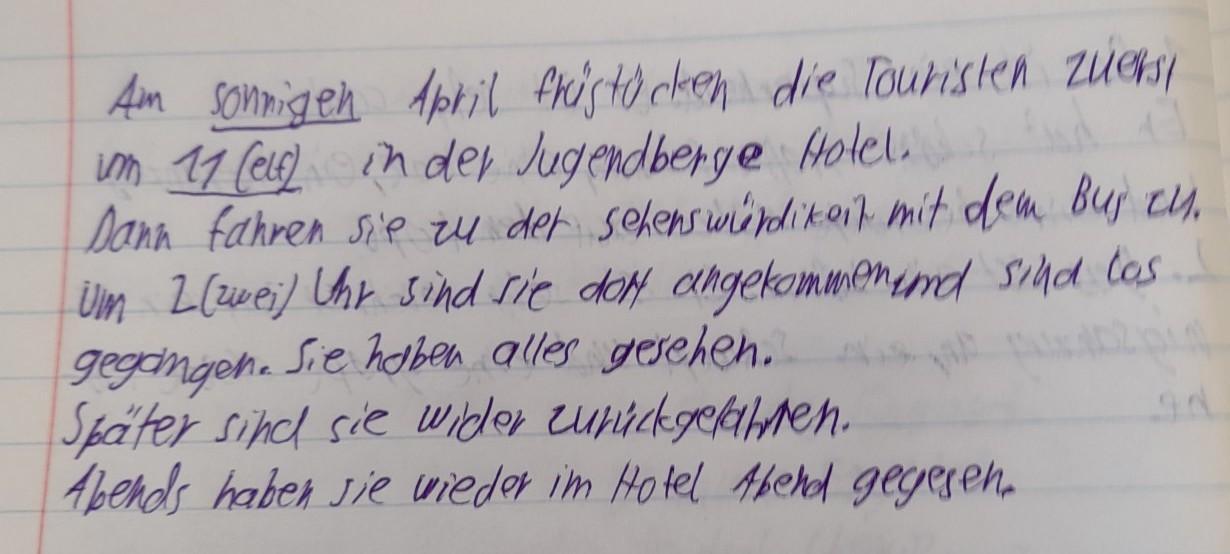 Am sonnigen April früstücken die Touristen zuerst
um 11 (elf) in der Jugendberge Hotel.
Dann fahren sie zu der sehenswürdikeit mit dem Bus zu.
Um 2 (zwei) Uhr sind sie dort angekommen und sind los
gegangen. Sie haben alles gesehen.
Später sind sie wider zurückgefahren.
Abends haben sie wieder im Hotel Abend gegesen.